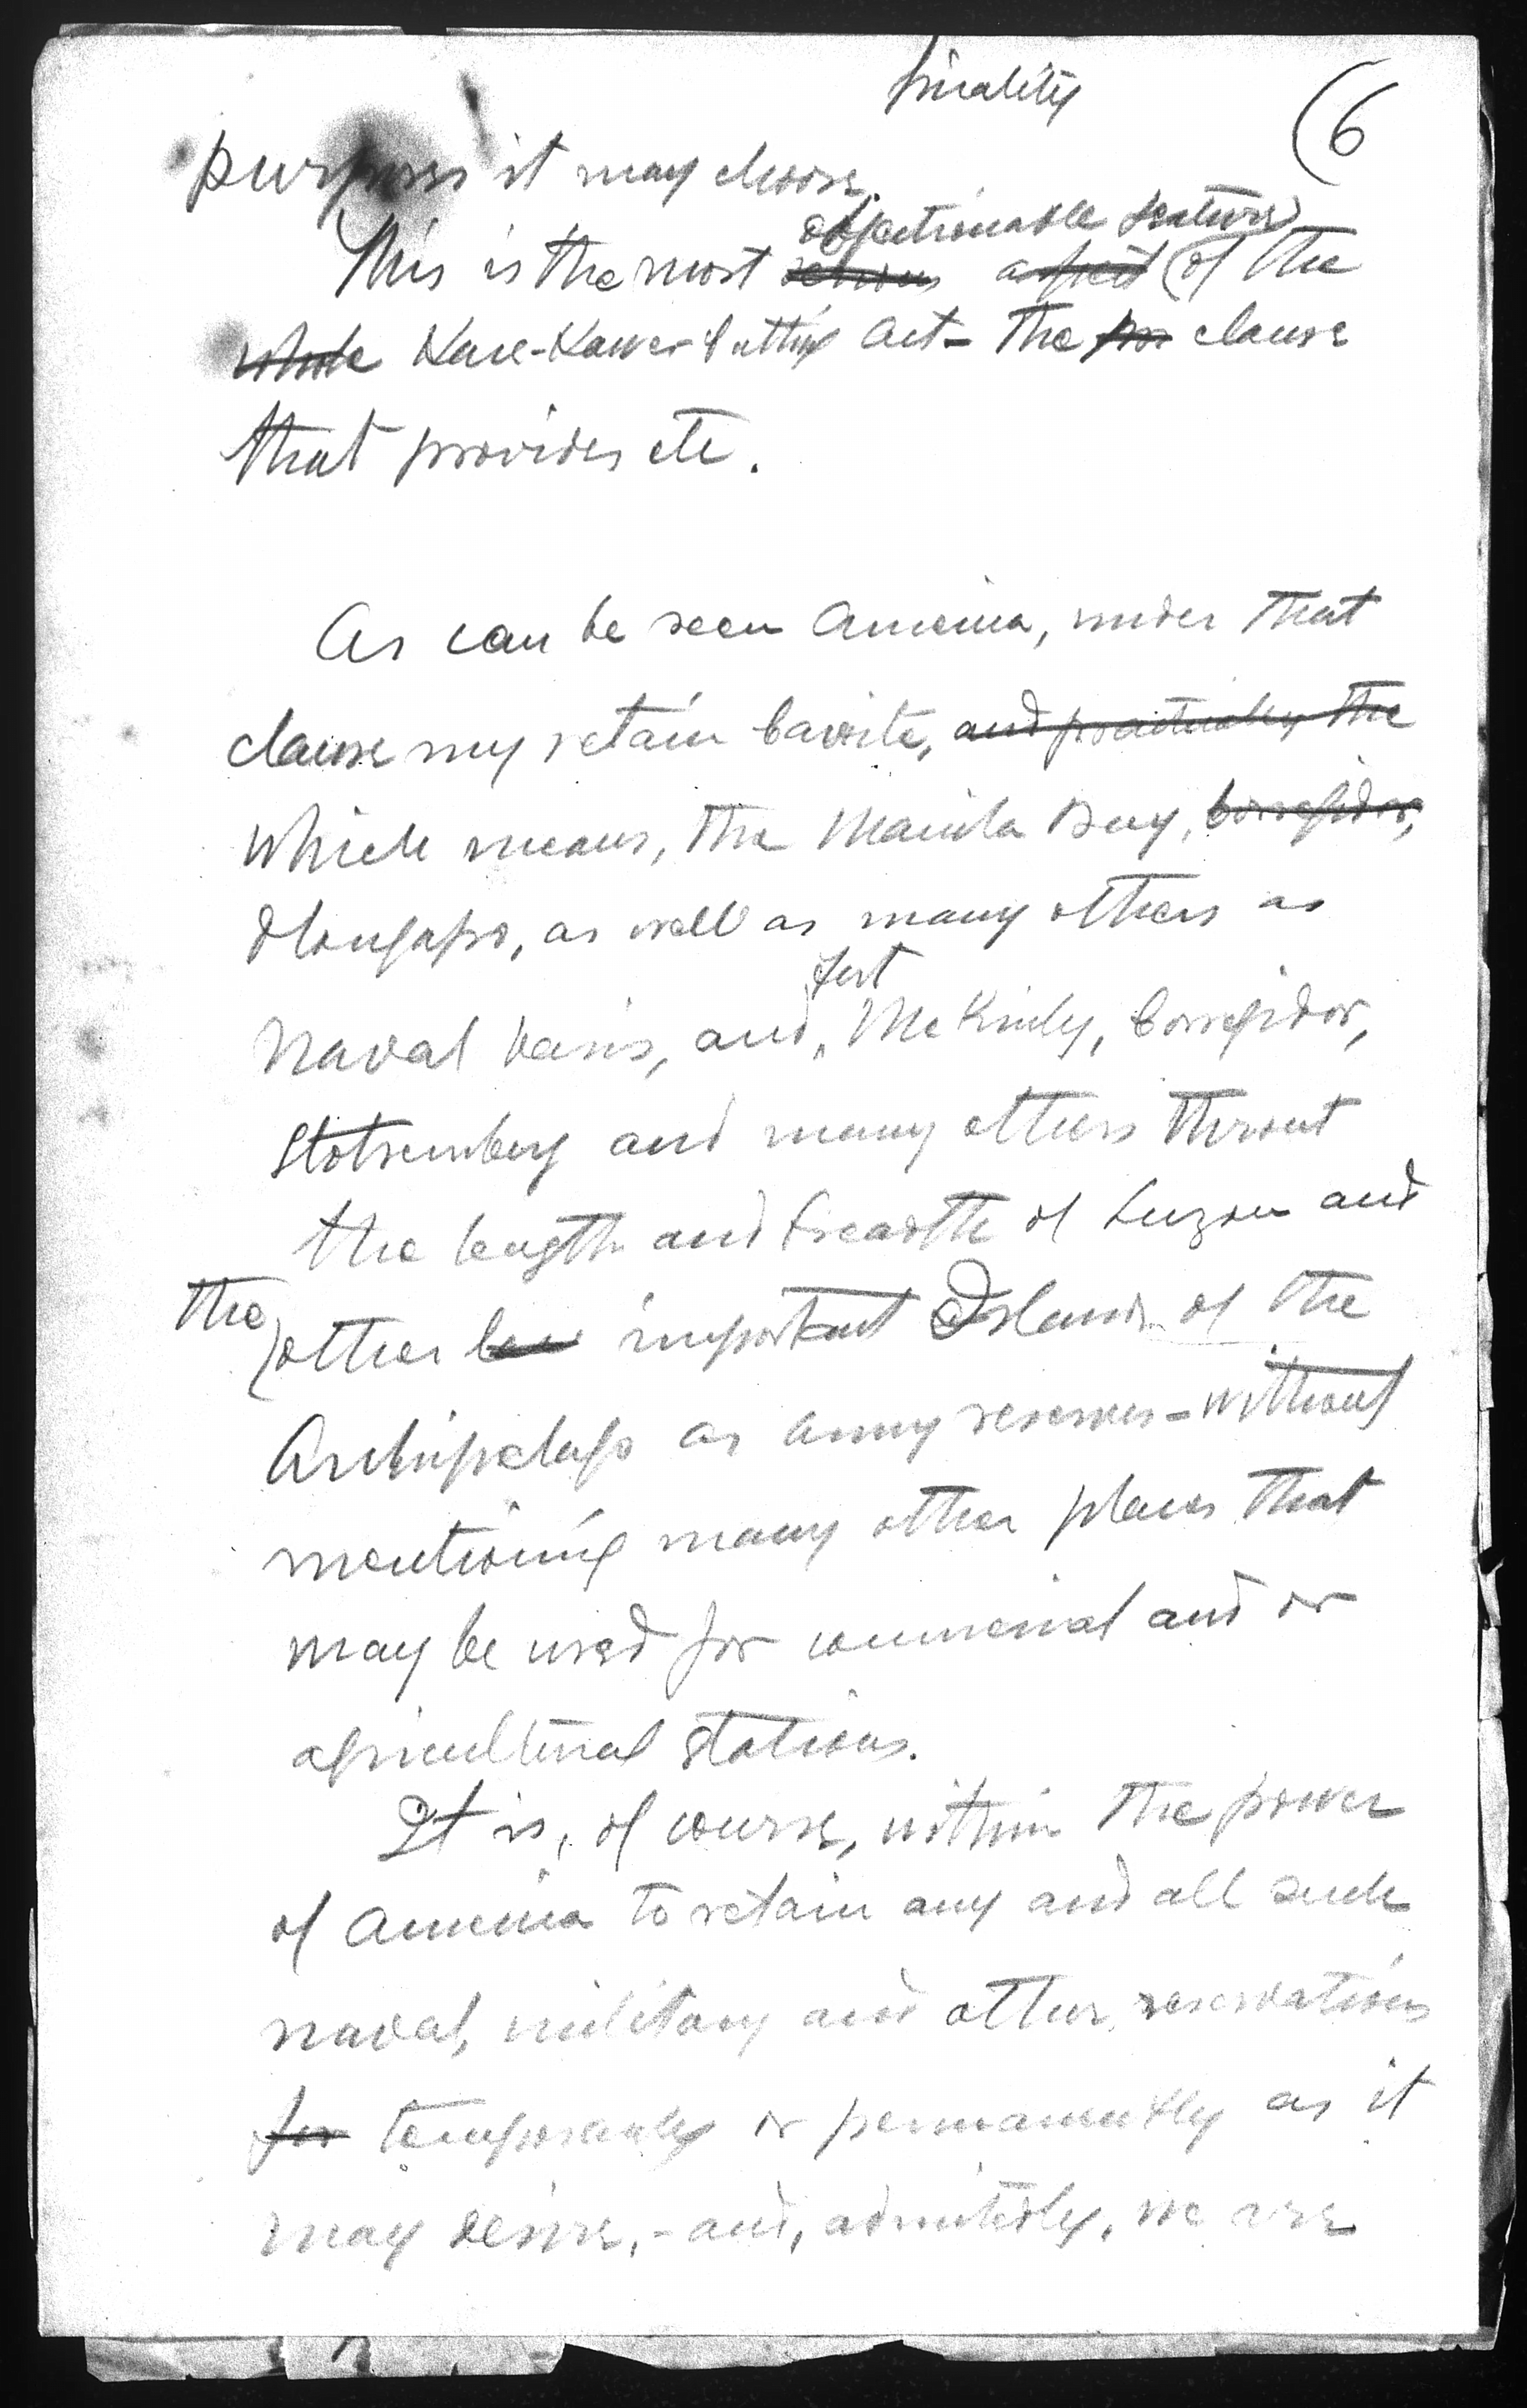 finality
(6
purposes it may choose.
objectionable feature
This is the most serious aspect of the
whole Hare-Hawes-Cutting Act - The clause
that provides etc.
As can be seen America, under that
clause my retain Cavite, and practically the
which means, the Manila Bay, Corregidor,
Olongapo, as well as many others as
Fort
Naval basis, and McKinly, Corregidor,
Stotsemberg and many others thruout
the length and breadth of Luzon and
the
other important Islands of the
Archipelago as army reserves - without
mentioning many other places that
may be used for commercial and or
agricultural stations.
It is, of course, within the power
of America to retain any and all such
naval, military and other reservations
for temporarily or permanently as it
may desire, - and, admitedly, we are